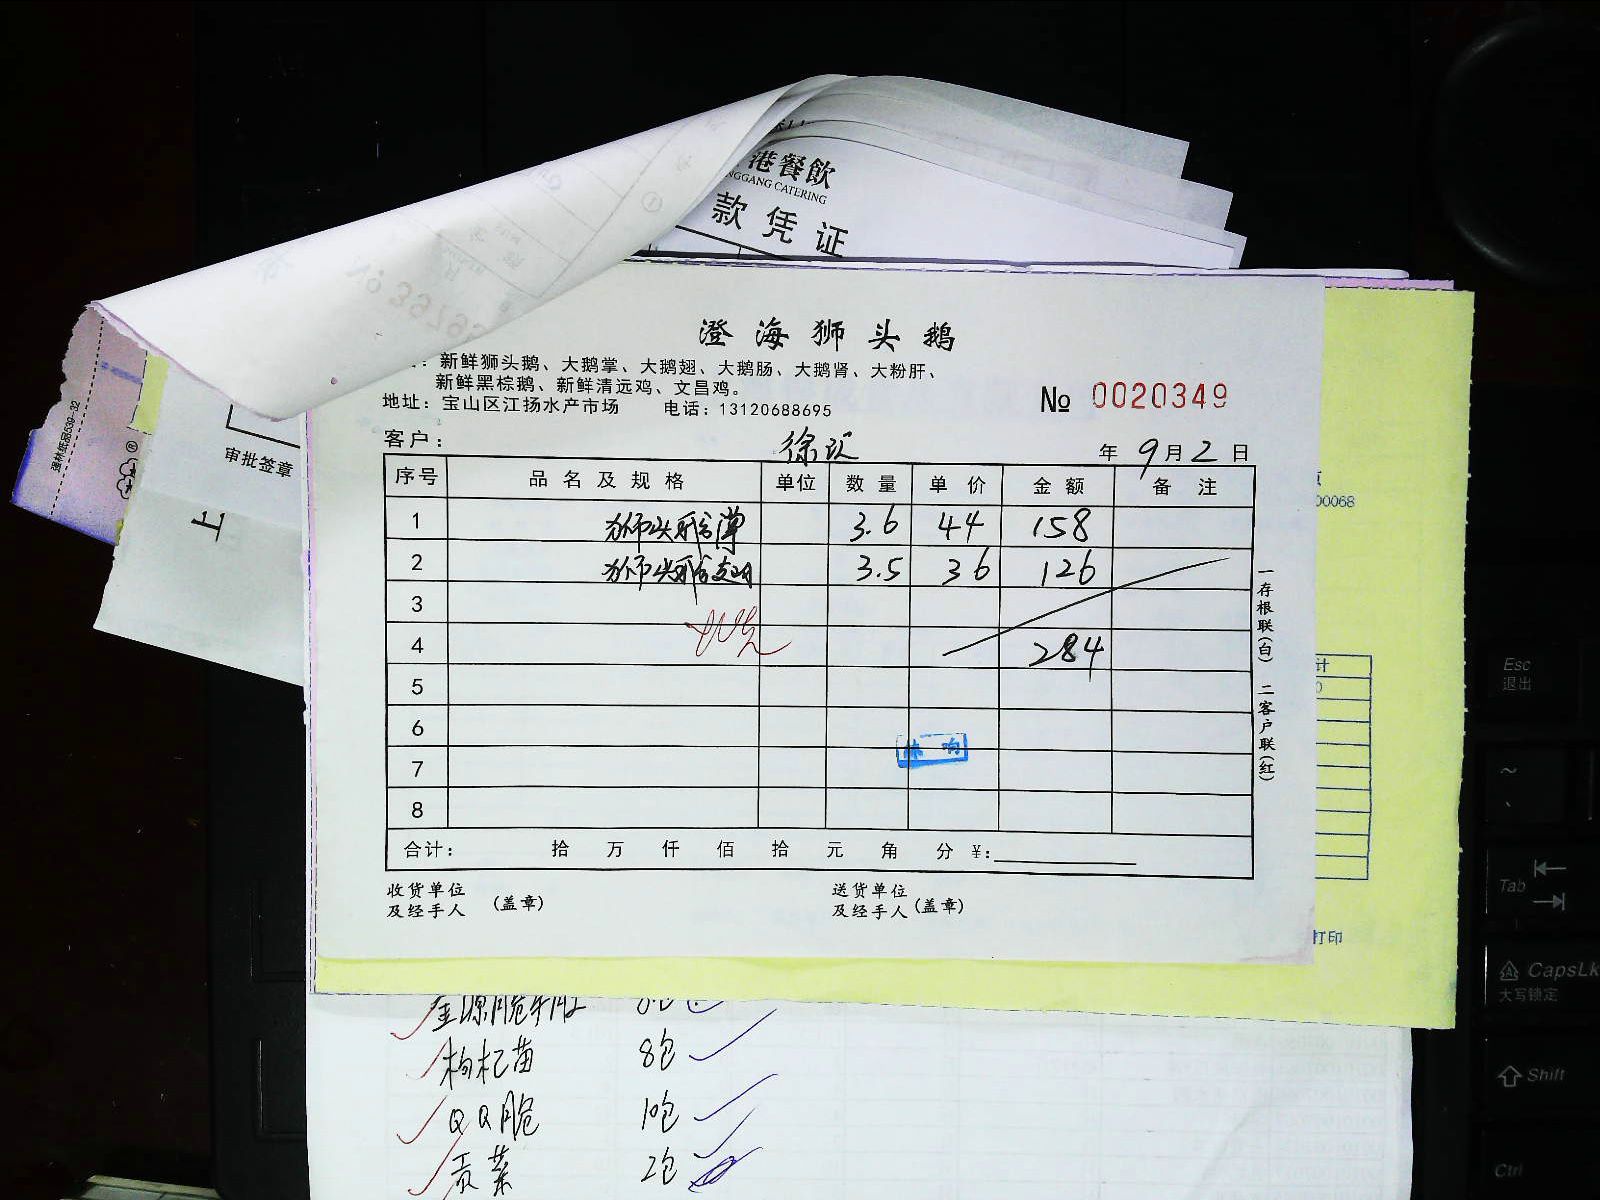 港餐飲
NGGANG CATERING
款凭证
澄海狮头鹅
：新鲜狮头鹅、大鹅掌、大鹅翅、大鹅肠、大鹅肾、大粉肝、
新鲜黑棕鹅、新鲜清远鸡、文昌鸡。
地址：宝山区江扬水产市场 电话：13120688695
№ 0020349
客户： 年 9 月 2 日
序号 品名及规格 单位 数量 单价 金额 备注
1 狮头鹅掌 3.6 44 158
2 狮头鹅翅 3.5 36 126
3
4 284
5
6
7
8
合计： 拾 万 仟 佰 拾 元 角 分 ¥：
收货单位
及经手人 (盖章)
送货单位
及经手人 (盖章)
一存根联(白) 二客户联(红)
审批签章
上
00068
计
打印
枸杞苗 8包
QQ脆 10包
贡菜 2包
Esc
退出
Tab
CapsLk
大写锁定
Shift
Ctrl